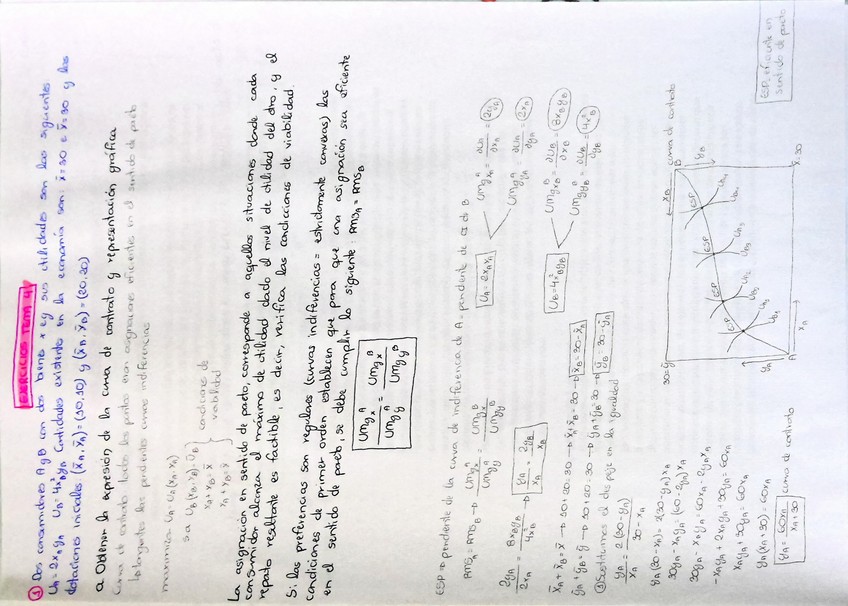 EJERCICIOS TEMA 4
① Dos consumidores A y B con dos bienes x e y sus utilidades son las siguientes
UA = 2xAyA UB = 4x²ByB Cantidades existentes en la economía son: x̄=30 e ȳ=30 y las
dotaciones iniciales (x̄A, ȳA) = (10,10) y (x̄B, ȳB) = (20,20)
a. Obtener la expresión de la curva de contrato y representación gráfica
Curva de contrato todos los puntos son asignaciones eficientes en el sentido de pareto
la tangente las pendientes curvas indiferencias
maximiza UA = UA(xA, yA)
s.a UB(xB, yB) = ŪB
xA + xB = x̄
yA + yB = ȳ
condiciones de
viabilidad
La asignación en sentido de pareto, corresponde a aquellas situaciones donde cada
consumidor alcanza el máximo de utilidad dado el nivel de utilidad del otro, y el
reparto resultante es factible, es decir, verifica las condiciones de viabilidad.
Si las preferencias son regulares (curvas indiferencias = estrictamente convexas) las
condiciones de primer orden establecen que para que una asignación sea eficiente
en el sentido de pareto, se debe cumplir lo siguiente: RMSA = RMSB
UMgxA / UMgyA = UMgxB / UMgyB
ESP → pendiente de la curva de indiferencia de A = pendiente de CI de B
RMSA = RMSB → UMgxA / UMgyA = UMgxB / UMgyB
UA = 2xAyA
UMgxA = ∂UA/∂xA = 2yA
UMgyA = ∂UA/∂yA = 2xA
2yA/2xA = 8xByB/4x²B → yA/xA = 2yB/xB
UB = 4x²ByB
UMgxB = ∂UB/∂xB = 8xByB
UMgyB = ∂UB/∂yB = 4x²B
x̄A + x̄B = x̄ → 10+20=30 → x̄A + x̄B = 30 → x̄B = 30 - x̄A
ȳA + ȳB = ȳ → 10+20=30 → ȳA + ȳB = 30 → ȳB = 30 - ȳA
yA/xA = 2(30-yA)/30-xA
yA(30-xA) = 2(30-yA)xA
30yA - xAyA = (60-2yA)xA
30yA - xAyA = 60xA - 2yAxA
-xAyA + 2xAyA + 30yA = 60xA
xAyA + 30yA = 60xA
yA(xA+30) = 60xA
yA = 60xA/xA+30 curva de contrato
30=ȳ
xB
B
curva de contrato
yB
ESP
ESP
ESP
yA
A
xA
x̄=30
ESP, eficiente en
sentido de pareto